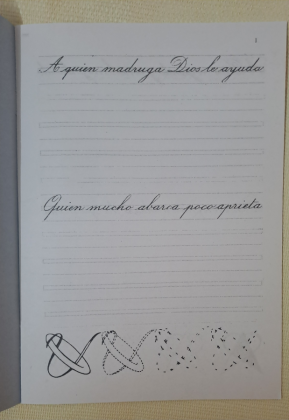 1
A quien madruga Dios le ayuda
Quien mucho abarca poco aprieta